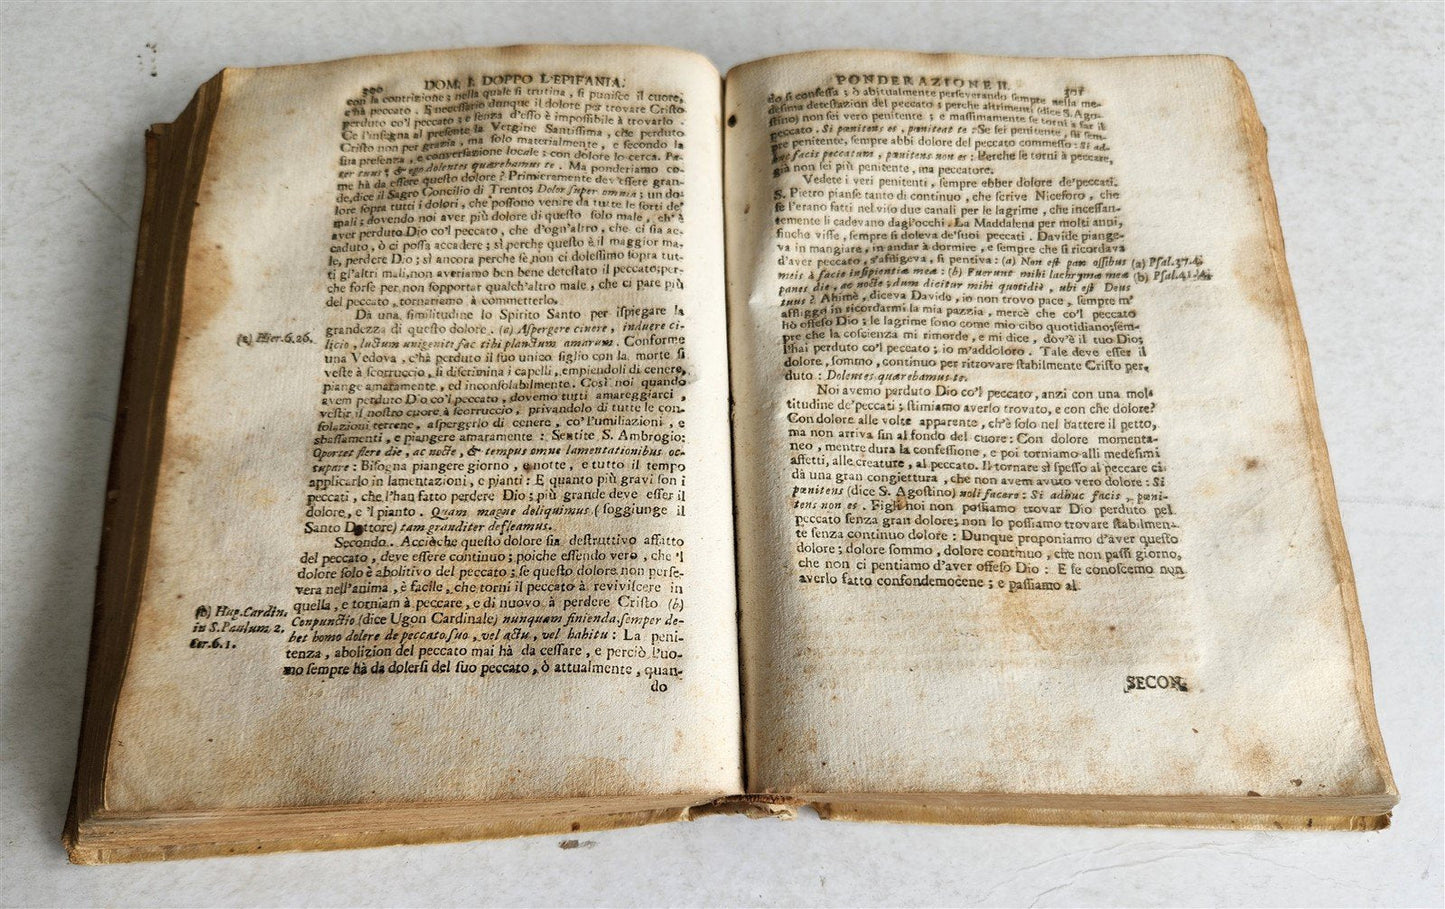 300 DOM. I. DOPPO L'EPIFANIA.
con la contrizione; nella quale si trutina, si punisce il cuore,
c'hà peccato. E necessario dunque il dolore per trovare Cristo
perduto co'l peccato; e senza d'esso è impossibile à trovarlo.
Ce l'insegna al presente la Vergine Santissima, che perduto
Cristo non per grazia, ma solo materialmente, e secondo la
sua presenza, e conversazione locale; con dolore lo cerca. Pa-
ter tuus, & ego dolentes quærebamus te. Ma ponderiamo co-
me hà da essere questo dolore? Primieramente dev'essere gran-
de, dice il Sagro Concilio di Trento; Dolor super omnia; un do-
lore sopra tutti i dolori, che possono venire da tutte le sorti de'
mali; dovendo noi aver più dolore di questo solo male, ch'è
aver perduto Dio co'l peccato, che d'ogn'altro, che ci sia ac-
caduto, ò ci possa accadere; sì perche questo è il maggior ma-
le, perdere Dio; sì ancora perche sè non ci dolessimo sopra tut-
ti gl'altri mali, non averiamo ben bene detestato il peccato; per-
che forse per non sopportar qualch'altro male, che ci pare più
del peccato, tornariamo à commetterlo.
Da una similitudine lo Spirito Santo per ispiegare la
(a) Hier.6.26. grandezza di questo dolore. (a) Aspergere cinere, induere ci-
licio, luctum unigeniti fac tibi planctum amarum. Conforme
una Vedova, c'hà perduto il suo unico figlio con la morte si
veste à scorruccio, si discrimina i capelli, empiendoli di cenere,
piange amaramente, ed inconsolabilmente. Così noi quando
avem perduto Dio co'l peccato, dovemo tutti amareggiarci,
vestir il nostro cuore à scorruccio, privandolo di tutte le con-
solazioni terrene, aspergerlo di cenere, co'l'umiliazioni, e
sbassamenti, e piangere amaramente: Sentite S. Ambrogio:
Oportet flere die, ac nocte, & tempus omne lamentationibus oc-
cupare: Bisogna piangere giorno, e notte, e tutto il tempo
applicarlo in lamentazioni, e pianti: E quanto più gravi son i
peccati, che l'han fatto perdere Dio; più grande deve esser il
dolore, e 'l pianto. Quam magne deliquimus (soggiunge il
Santo Dottore) tam granditer defleamus.
Secondo. Acciòche questo dolore sia destruttivo affatto
del peccato, deve essere continuo; poiche essendo vero, che 'l
dolore solo è abolitivo del peccato; se questo dolore non perse-
vera nell'anima, è facile, che torni il peccato à reviviscere in
(b) Hug.Cardin. quella, e torniam à peccare, e di nuovo à perdere Cristo (b)
in S.Paulum 2. Conpunctio (dice Ugon Cardinale) nunquam finienda. semper de-
Cor.6.1. bet homo dolere de peccato suo, vel actu, vel habitu: La peni-
tenza, abolizion del peccato mai hà da cessare, e perciò l'uo-
mo sempre hà da dolersi del suo peccato, ò attualmente, quan-
do
PONDERAZIONE II. 301
do si confessa; ò abitualmente perseverando sempre nella me-
desima detestazion del peccato; perche altrimenti (dice S. Ago-
stino) non sei vero penitente; e massimamente se torni a far il
peccato. Si pænitens es, pæniteat te: Se sei penitente, sii sem-
pre penitente, sempre abbi dolore del peccato commesso: Si ad-
huc facis peccatum, pænitens non es: Perche se torni à peccare,
già non sei più penitente, ma peccatore.
Vedete i veri penitenti, sempre ebber dolore de' peccati.
S. Pietro pianse tanto di continuo, che scrive Niceforo, che
se l'erano fatti nel viso due canali per le lagrime, che incessan-
temente li cadevano dagl'occhi. La Maddalena per molti anni,
finche visse, sempre si doleva de'suoi peccati. Davide piange-
va in mangiare, in andar à dormire, e sempre che si ricordava
d'aver peccato, s'affligeva, si pentiva: (a) Non est pax ossibus (a) Psal.37.4.
meis à facie insipientiæ meæ: (b) Fuerunt mihi lachrymæ meæ (b) Psal.41.4.
panes die, ac nocte; dum dicitur mihi quotidiè, ubi est Deus
tuus? Ahimè, diceva Davide, io non trovo pace, sempre m'
affliggo in ricordarmi la mia pazzia, mercè che co'l peccato
hò offeso Dio; le lagrime sono come mio cibo quotidiano; sem-
pre che la coscienza mi rimorde, e mi dice, dov'è il tuo Dio;
l'hai perduto co'l peccato; io m'addoloro. Tale deve esser il
dolore, sommo, continuo per ritrovare stabilmente Cristo per-
duto: Dolentes quærebamus te.
Noi avemo perduto Dio co'l peccato, anzi con una mol-
titudine de'peccati; stimiamo averlo trovato, e con che dolore?
Con dolore alle volte apparente, ch'è solo nel battere il petto,
ma non arriva sin al fondo del cuore: Con dolore momenta-
neo, mentre dura la confessione, e poi torniamo alli medesimi
affetti, alle creature, al peccato. Il tornare sì spesso al peccare ci
dà una gran congiettura, che non avem avuto vero dolore: Si
pænitens (dice S. Agostino) noli facere: Si adhuc facis, pæni-
tens non es. Figli noi non possiamo trovar Dio perduto pel
peccato senza gran dolore; non lo possiamo trovare stabilmen-
te senza continuo dolore: Dunque proponiamo d'aver questo
dolore; dolore sommo, dolore continuo, che non passi giorno,
che non ci pentiamo d'aver offeso Dio: E se conoscemo non
averlo fatto confondemocene; e passiamo al
SECON-